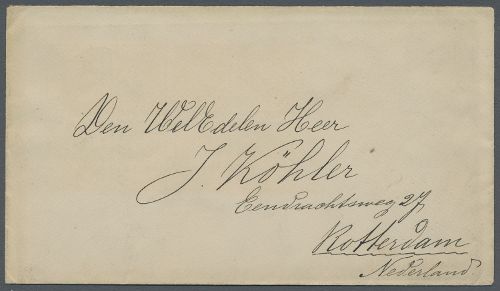 Den WelEdelen Heer
J. Köhler
Eendrachtsweg 27
Rotterdam
Nederland